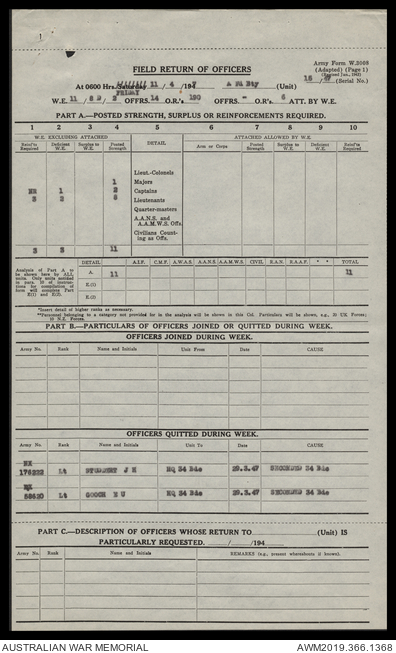 Army Form W.3008
(Adapted) (Page 1)
FIELD RETURN OF OFFICERS
(Serial No.)
At 0600 Hrs. Saturday 11 / 4 /194 A Fd Bty (Unit)
FRIDAY
W.E. 11 / OFFRS. 14 O.R.'s 190 OFFRS. - O.R.'s 6 ATT. BY W.E.
PART A.—POSTED STRENGTH, SURPLUS OR REINFORCEMENTS REQUIRED.
1 2 3 4 5 6 7 8 9 10
W.E. EXCLUDING ATTACHED DETAIL ATTACHED ALLOWED BY W.E.
Reinf'ts Required Deficient W.E. Surplus to W.E. Posted Strength Arm or Corps Posted Strength Surplus to W.E. Deficient W.E. Reinf'ts Required
Lieut.-Colonels
1 Majors
1 Captains
2 6 Lieutenants
Quarter-masters
A.A.N.S. and A.A.M.W.S. Offs.
Civilians Counting as Offs.
3 3 11
DETAIL A.I.F. C.M.F. A.W.A.S. A.A.N.S. A.A.M.W.S. CIVIL R.A.N. R.A.A.F. * * TOTAL
Analysis of Part A to be shown here by ALL units. Only units entitled to para. 10 of instructions for compilation of form will complete Part E(1) and E(2).
A. 11 11
E.(1)
E.(2)
*Insert detail of higher ranks as necessary.
**Personnel belonging to a category not provided for in the analysis will be shown in this Col. Particulars will be shown, e.g., 20 UK Forces;
10 N.Z. Forces.
PART B.—PARTICULARS OF OFFICERS JOINED OR QUITTED DURING WEEK.
OFFICERS JOINED DURING WEEK.
Army No. Rank Name and Initials Unit From Date CAUSE
OFFICERS QUITTED DURING WEEK.
Army No. Rank Name and Initials Unit To Date CAUSE
NX
176222 Lt J H HQ 34 Bde 29.3.47 SECONDED 34 Bde
NX
Lt GOOCH HQ 34 Bde 29.3.47 SECONDED 34 Bde
PART C.—DESCRIPTION OF OFFICERS WHOSE RETURN TO (Unit) IS
PARTICULARLY REQUESTED. / /194
Army No. Rank Name and Initials REMARKS (e.g., present whereabouts if known).
AUSTRALIAN WAR MEMORIAL AWM2019.366.1368